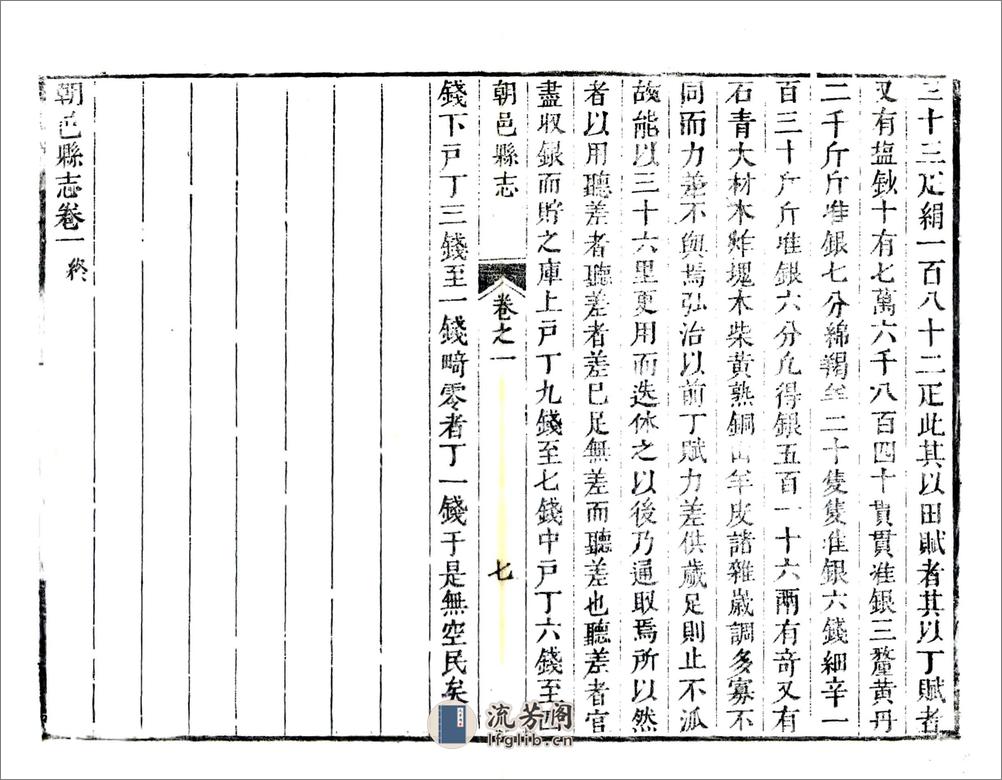 三十三疋絹一百八十二疋此其以田賦者其以丁賦者
又有塩鈔十有七萬六千八百四十貫貫准銀三釐黃丹
二千斤斤准銀七分綿羯羊二十隻隻准銀六錢細辛一
百三十斤斤准銀六分凢得銀五百一十六兩有竒又有
石青大材木炸塊木柴黃熟銅山羊皮諸雜歲調多寡不
同而力差不與焉弘治以前丁賦力差供歲足則止不泒
故能以三十六里更用而迭休之以後乃通取焉所以然
者以用聽差者聽差者差已足無差而聽差也聽差者官
盡収銀而貯之庫上戸丁九錢至七錢中戸丁六錢至四
朝邑縣志
卷之一
七
錢下戸丁三錢至一錢畸零者丁一錢于是無空民矣
朝邑縣志卷一
終
流芳阁
lfglib.cn